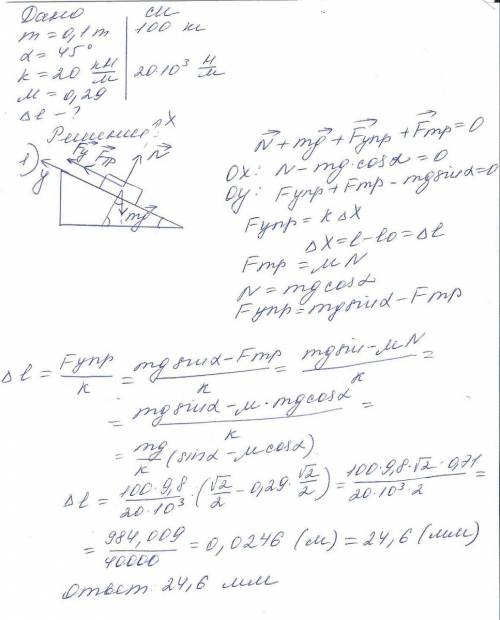 Дано СИ
m = 0,1 т 100 кг
α = 45°
k = 20 кН/м 20·10³ Н/м
м = 0,29
Δl - ?
Решение:
1) y Fy Fтр N X
mg
N + mg + Fупр + Fтр = 0
Ox: N - mg·cosα = 0
Oy: Fупр + Fтр - mg sinα = 0
Fупр = kΔX
ΔX = l - lo = Δl
Fтр = мN
N = mg cosα
Fупр = mg sinα - Fтр
Δl = Fупр/k = (mg sinα - Fтр)/k = (mg sin - мN)/k =
= (mg sinα - м·mg cosα)/k =
= mg/k (sinα - м cosα)
Δl = 100·9,8/20·10³ · (√2/2 - 0,29·√2/2) = 100·9,8·√2·0,71/20·10³·2 =
= 984,009/40000 = 0,0246 (м) = 24,6 (мм)
Ответ: 24,6 мм